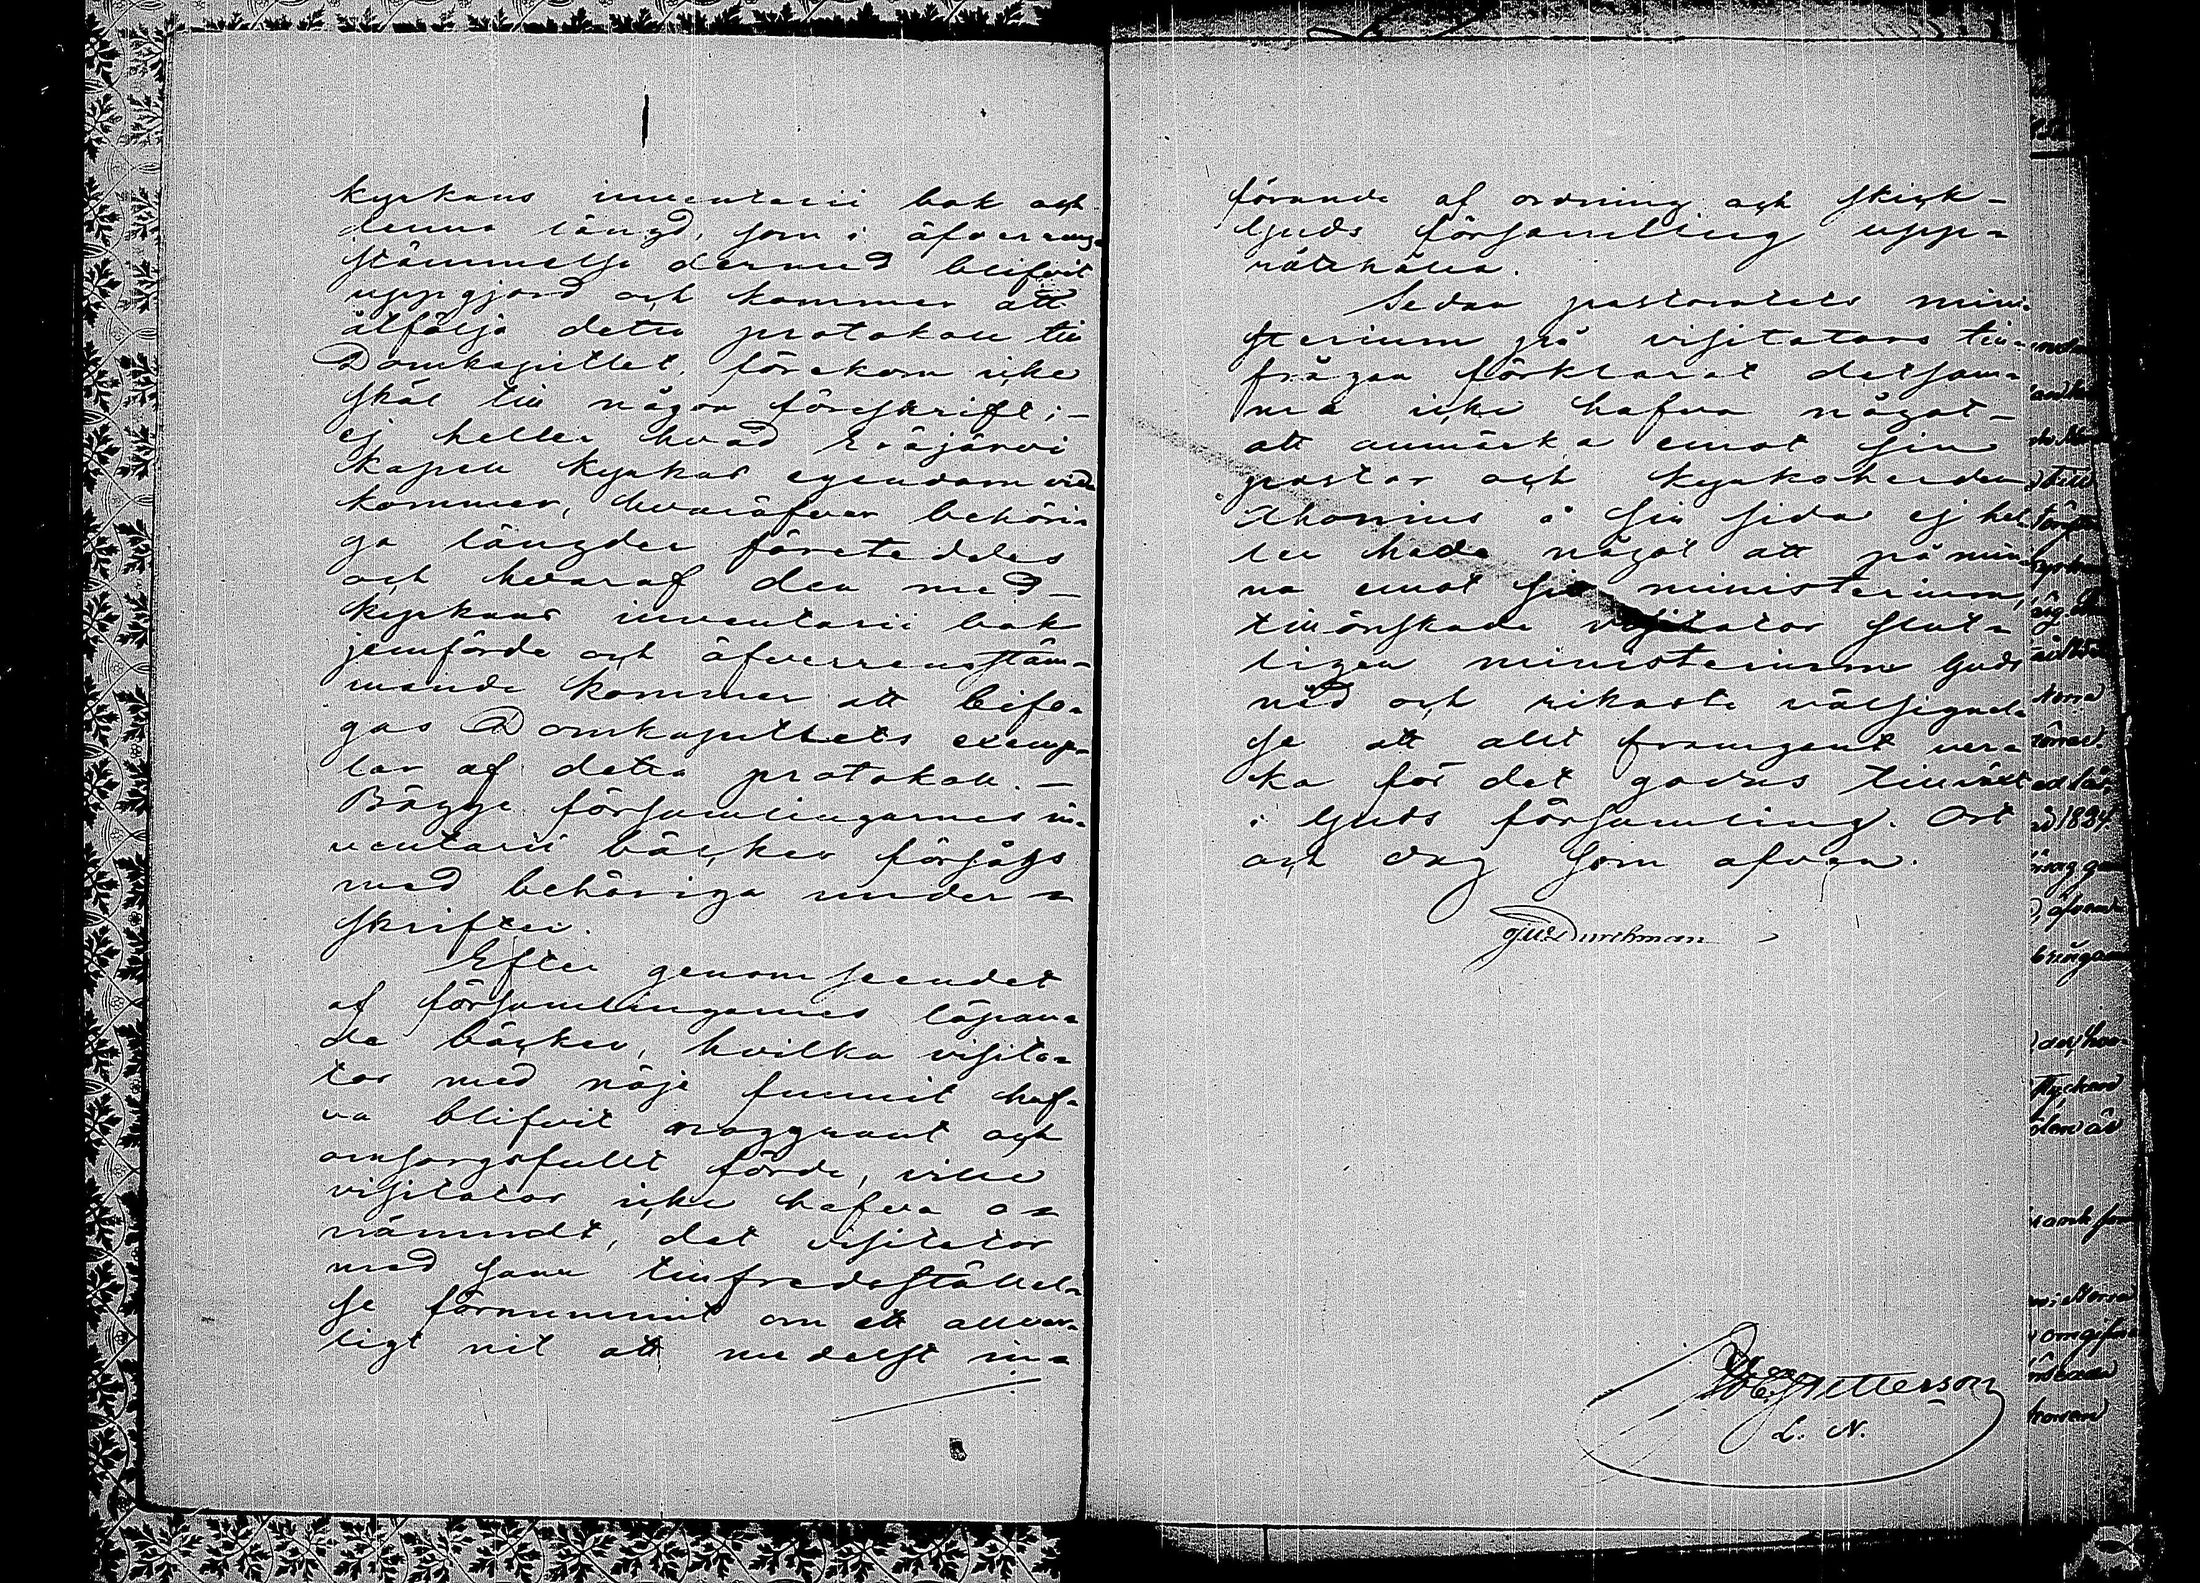 kyrkans inventarii bok och
denna längd, som i öfverens-
stämmelse dermed blifvit
uppgjord och kommer att
åtfölja detta protokoll till
Domkapitlet, förekom icke
skäl till någon föreskrift; –
ej heller hvad Eräjärvi
kapell kyrkas egendom vid-
kommer, hvaröfver behöri-
ga längder företeddes
och hvaraf den med
kyrkans inventarii bok
jemförda och öfverrensstäm-
mande kommer att bifo-
gas Domkapitlets exemp-
lar af detta protokoll. –
Bägge församlingarnes in-
ventarii böcker försågs
med behöriga under-
skrifter.
Efter genomseendet
af församlingarnes löpan-
de böcker, hvilka visita-
tor med nöje funnit haf-
va blifvit noggrannt och
omsorgsfullt förda, ville
visitator icke hafva o-
nämndt, det visitator
med sann tillfredsställel-
se förnummit om ett allvar-
ligt nit att medelst in-
förande af ordning och skick
i Guds församling upp-
rätthålla.
Sedan pastoratets mini-
sterium på visitators till-
frågan förklarat detsam-
ma icke hafva något
att anmärka emot sin
pastor och kyrkoherden
Thonius å sin sida ej hel-
ler hade något att påmin-
na emot sit ministerium,
tillönskade visitator slut-
ligen ministerium Guds
nåd och rikaste välsignel-
se att allt framgent ver-
ka för det godas tillväxt
i Guds församling. Ort
och dag som ofvan.
Durchman
Petterson
L. N.